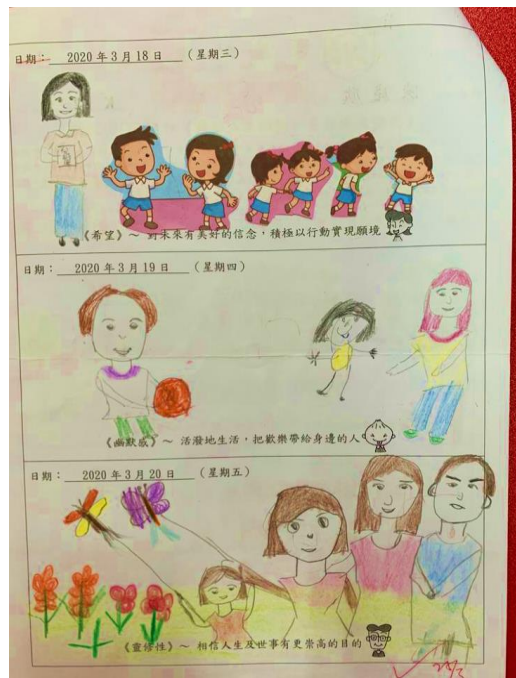 日期： 2020 年 3 月 18 日 （星期三）
《希望》～ 對未來有美好的信念，積極以行動實現願境
日期： 2020 年 3 月 19 日 （星期四）
《幽默感》～ 活潑地生活，把歡樂帶給身邊的人
日期： 2020 年 3 月 20 日 （星期五）
《靈修性》～ 相信人生及世事有更崇高的目的